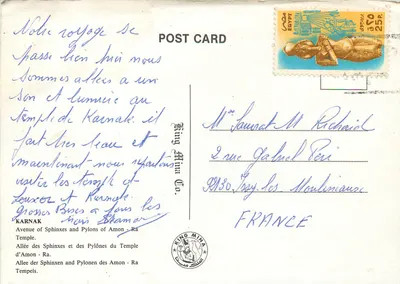 Notre voyage se
passe bien puis nous
sommes allées a un
son et lumière au
temple de Karnak. il
fait très beau et
maintenant nous repartons
visiter les temples de
Louxor et Karnak.
Grosses Bises a tous les
trois
KARNAK
Avenue of Sphinxes and Pylons of Amon - Ra
Temple.
Allée des Sphinxes et des Pylônes du Temple
d'Amon - Ra.
Allee der Sphinxen und Pylonen des Amon - Ra
Tempels.
King Mina Co.
KING MINA
POST CARD
EGYPT
25 P.
٢٥
M. Richard
2 rue Gabriel Peri
92130 Issy les Moulineaux
FRANCE